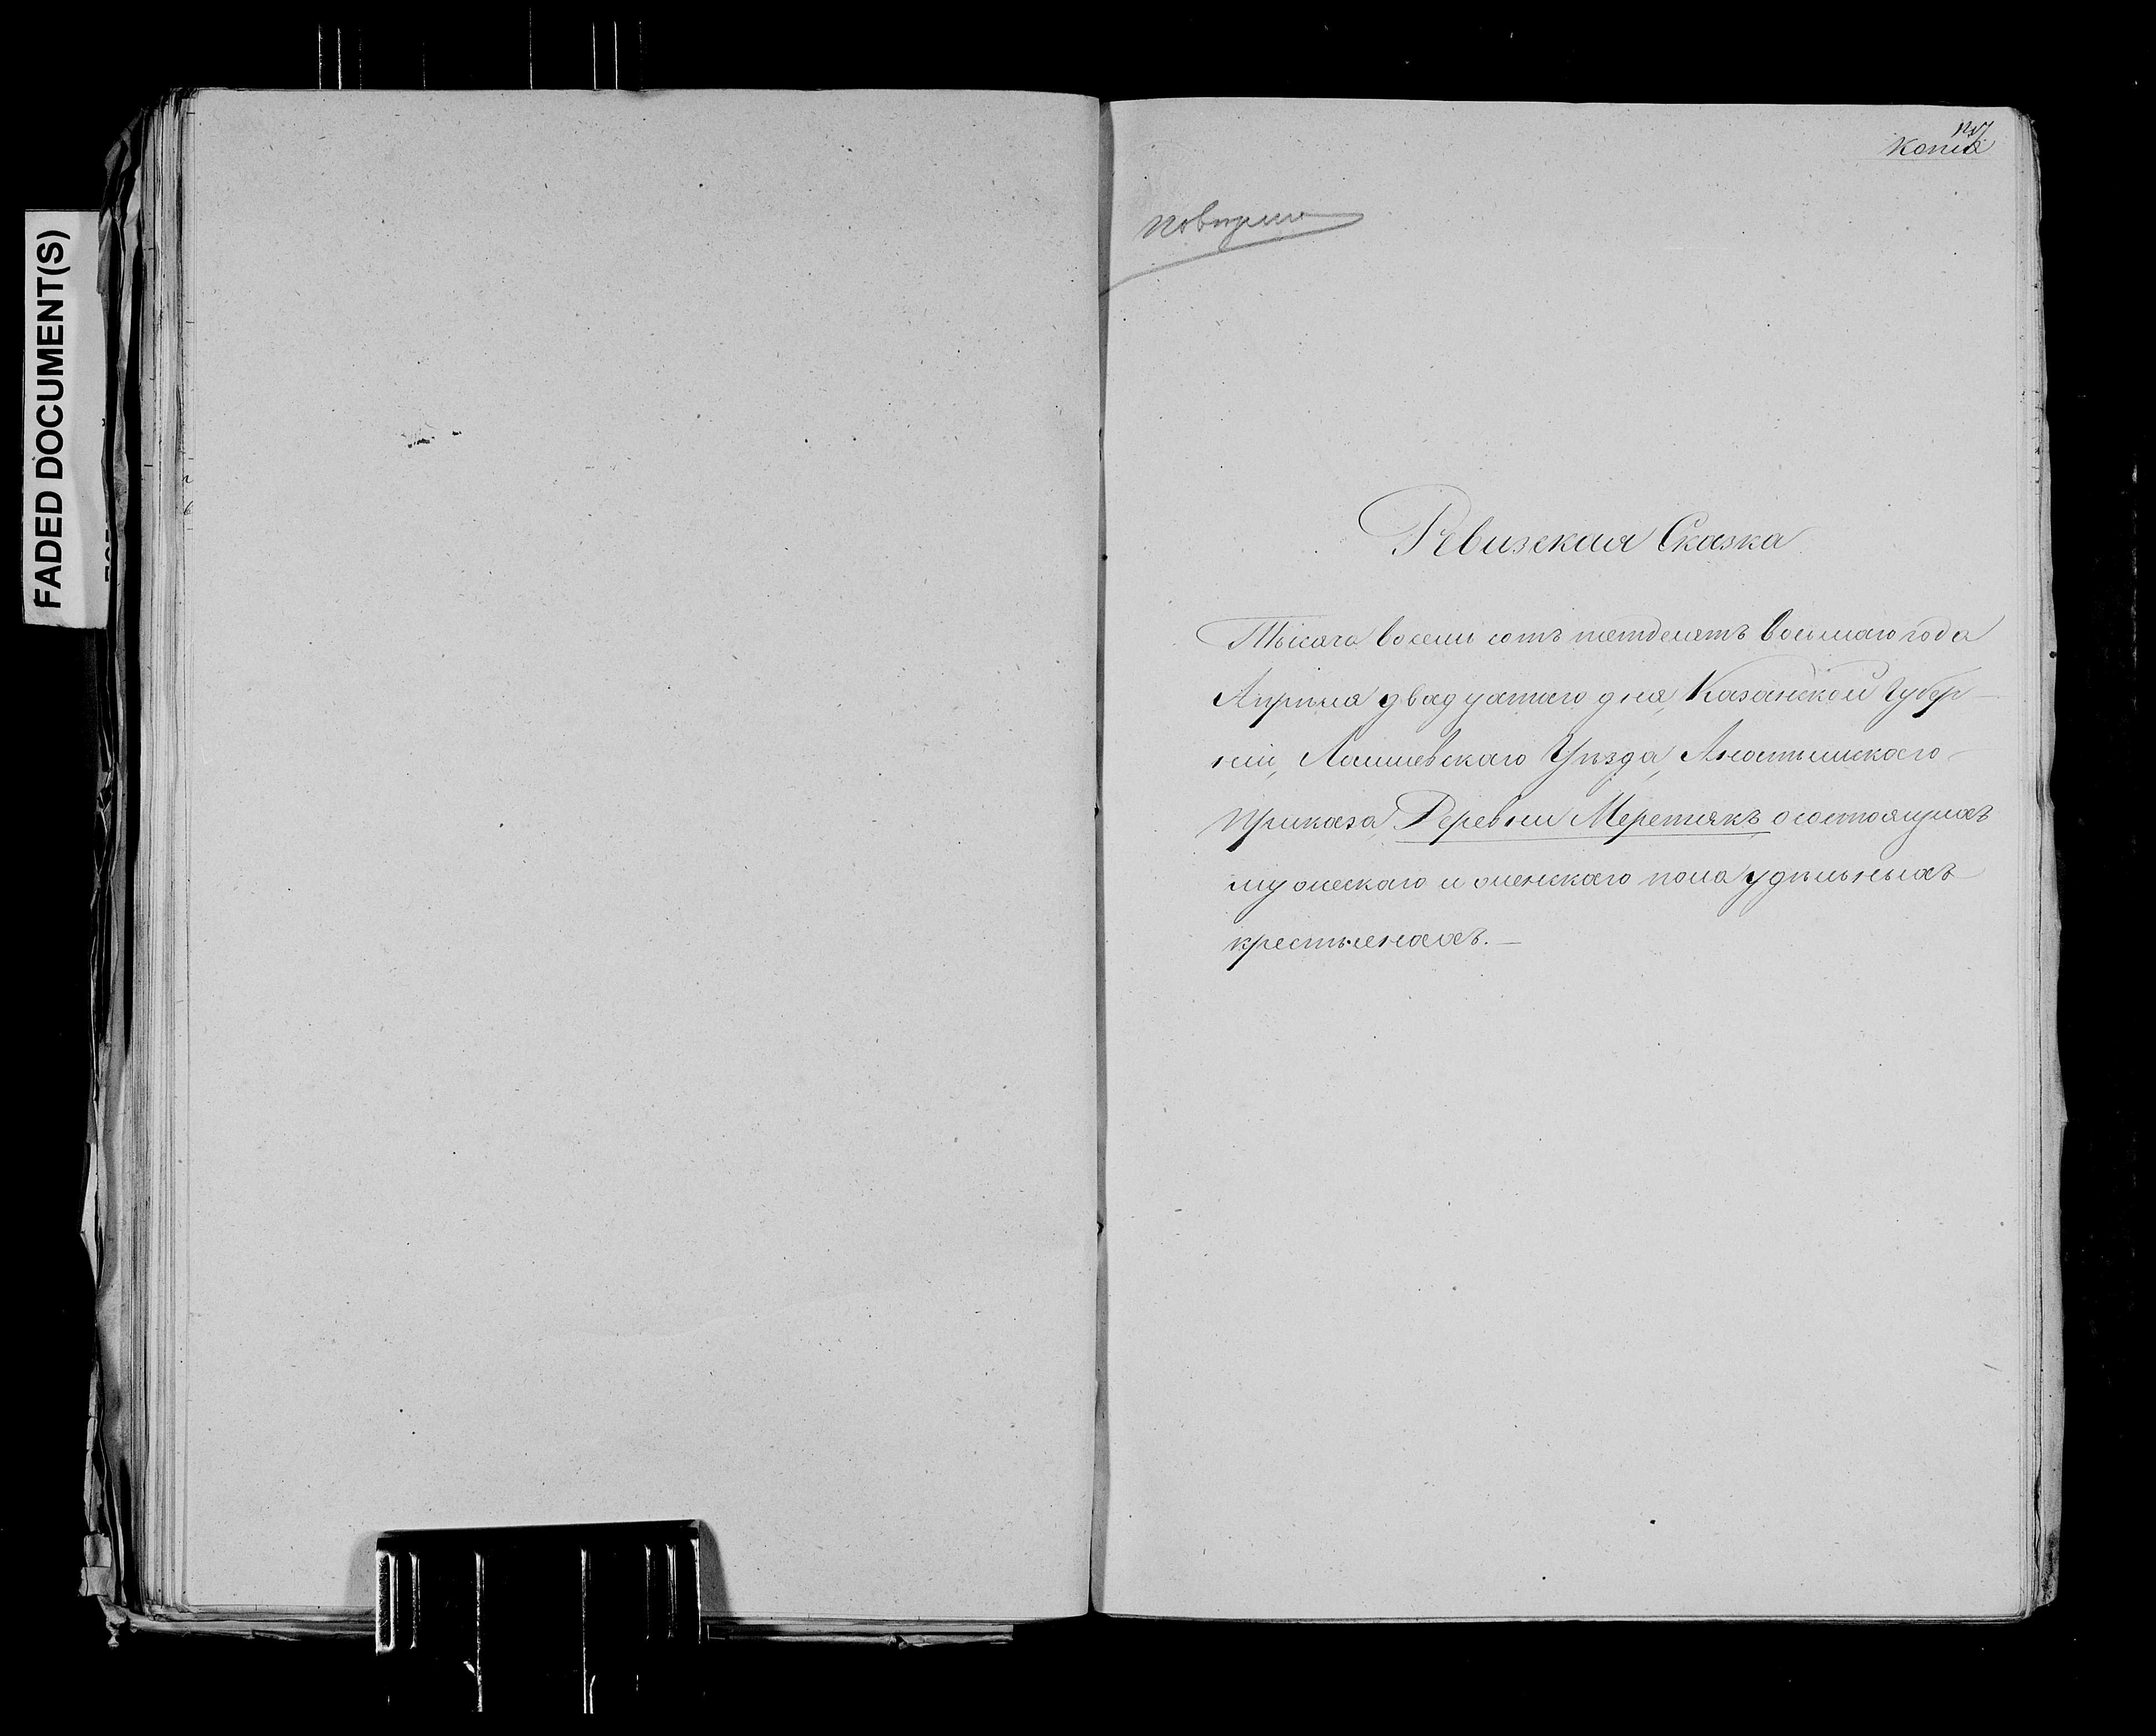 FADED DOCUMENT(S)
Копія
Ревизская Сказка
Тысяча восемь сотъ пятдесятъ восьмаго года
Апрѣля двадцатаго дня, Казанской Губер-
ніи, Лаишевскаго Уѣзда,
Приказа, Деревни Меретякъ о состоящихъ
мужескаго и женскаго пола удѣльныхъ
крестьянахъ. —